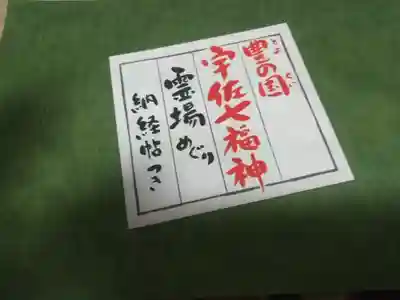 豊の国
とよ くに
宇佐七福神
霊場めぐり
納経帖つき